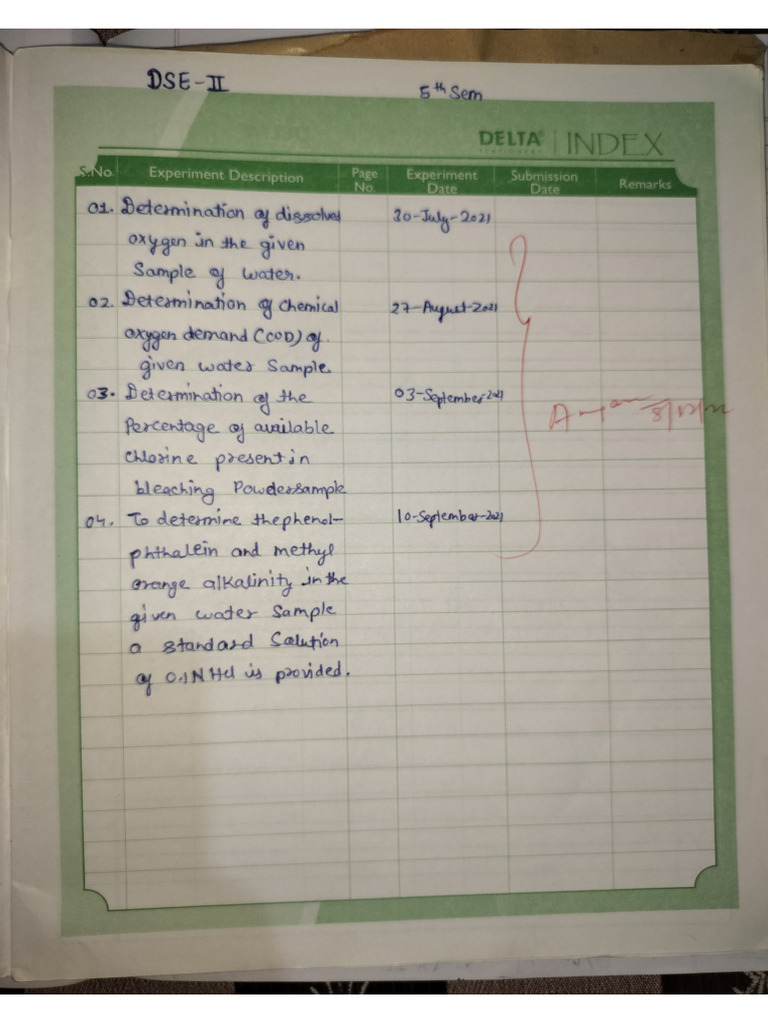 DSE-II
5th Sem
DELTA® | INDEX
S.No. Experiment Description Page No. Experiment Date Submission Date Remarks
01. Determination of dissolved 30-July-2021
oxygen in the given
Sample of water.
02. Determination of Chemical 27-August-2021
oxygen demand (COD) of
given water Sample
03. Determination of the 03-September-2021
Percentage of available
chlorine present in
bleaching Powder sample
04. To determine the phenol- 10-September-2021
phthalein and methyl
orange alkalinity in the
given water Sample
a standard Solution
of 0.1N HCl is provided.